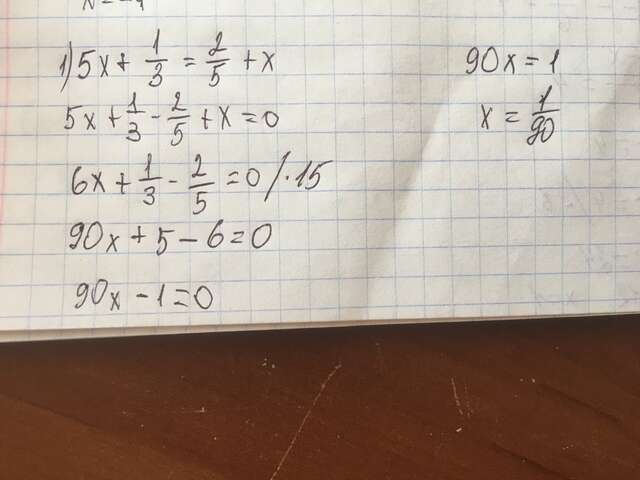 1) 5x + 1/3 = 2/5 + x
5x + 1/3 - 2/5 + x = 0
6x + 1/3 - 2/5 = 0 / · 15
90x + 5 - 6 = 0
90x - 1 = 0
90x = 1
x = 1/90